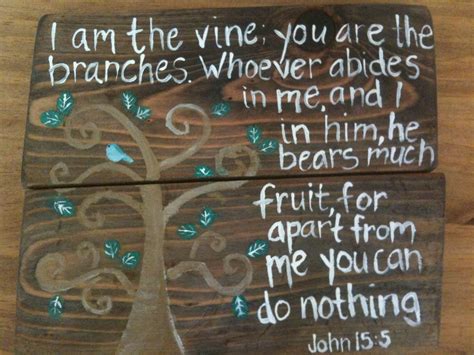 I am the vine; you are the
branches. Whoever abides
in me, and I
in him, he
bears much
fruit, for
apart from
me you can
do nothing
John 15:5